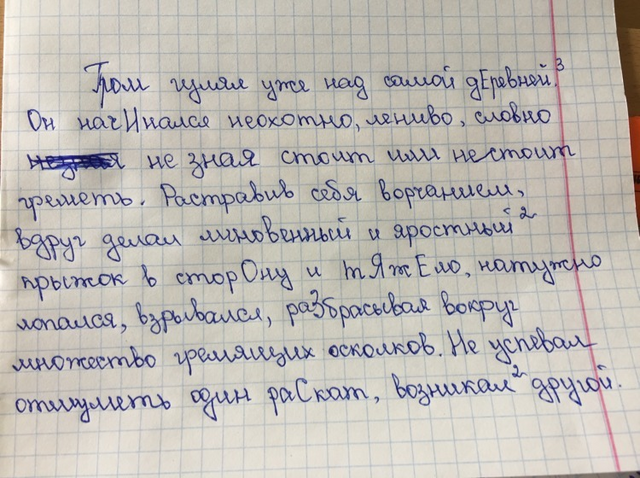 Гром гулял уже над самой дЕревней.³
Он начИнался неохотно, лениво, словно
не зная стоит или нестоит
греметь. Растравив себя ворчанием,
вдруг делал мгновенный и яростный²
прыжок в сторОну и тЯжЕло, натужно
лопался, взрывался, раЗбрасывая вокруг
множество гремящих осколков. Не успевал
отшуметь один раСкат, возникал² другой.